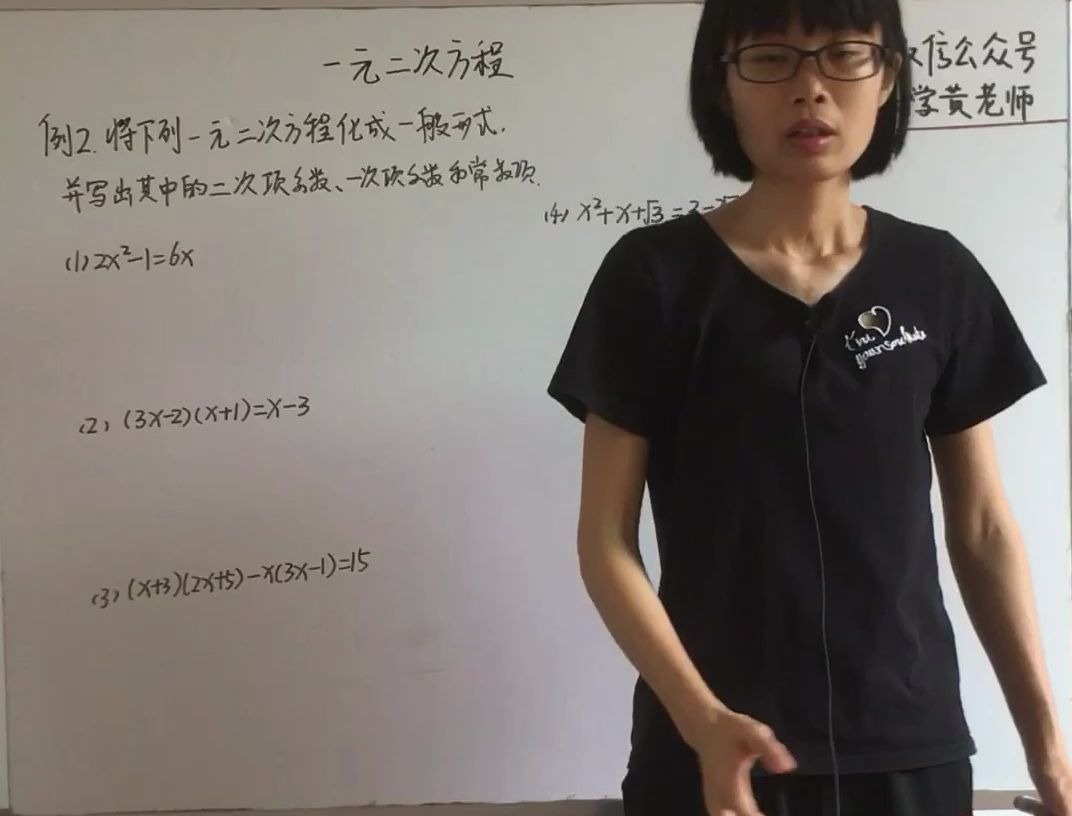 一元二次方程
信公众号
学黄老师
例2.将下列一元二次方程化成一般形式.
并写出其中的二次项系数、一次项系数和常数项.
(1) 2x²-1=6x
(2) (3x-2)(x+1)=x-3
(3) (x+3)(2x+5)-x(3x-1)=15
(4) x²+x+√3=